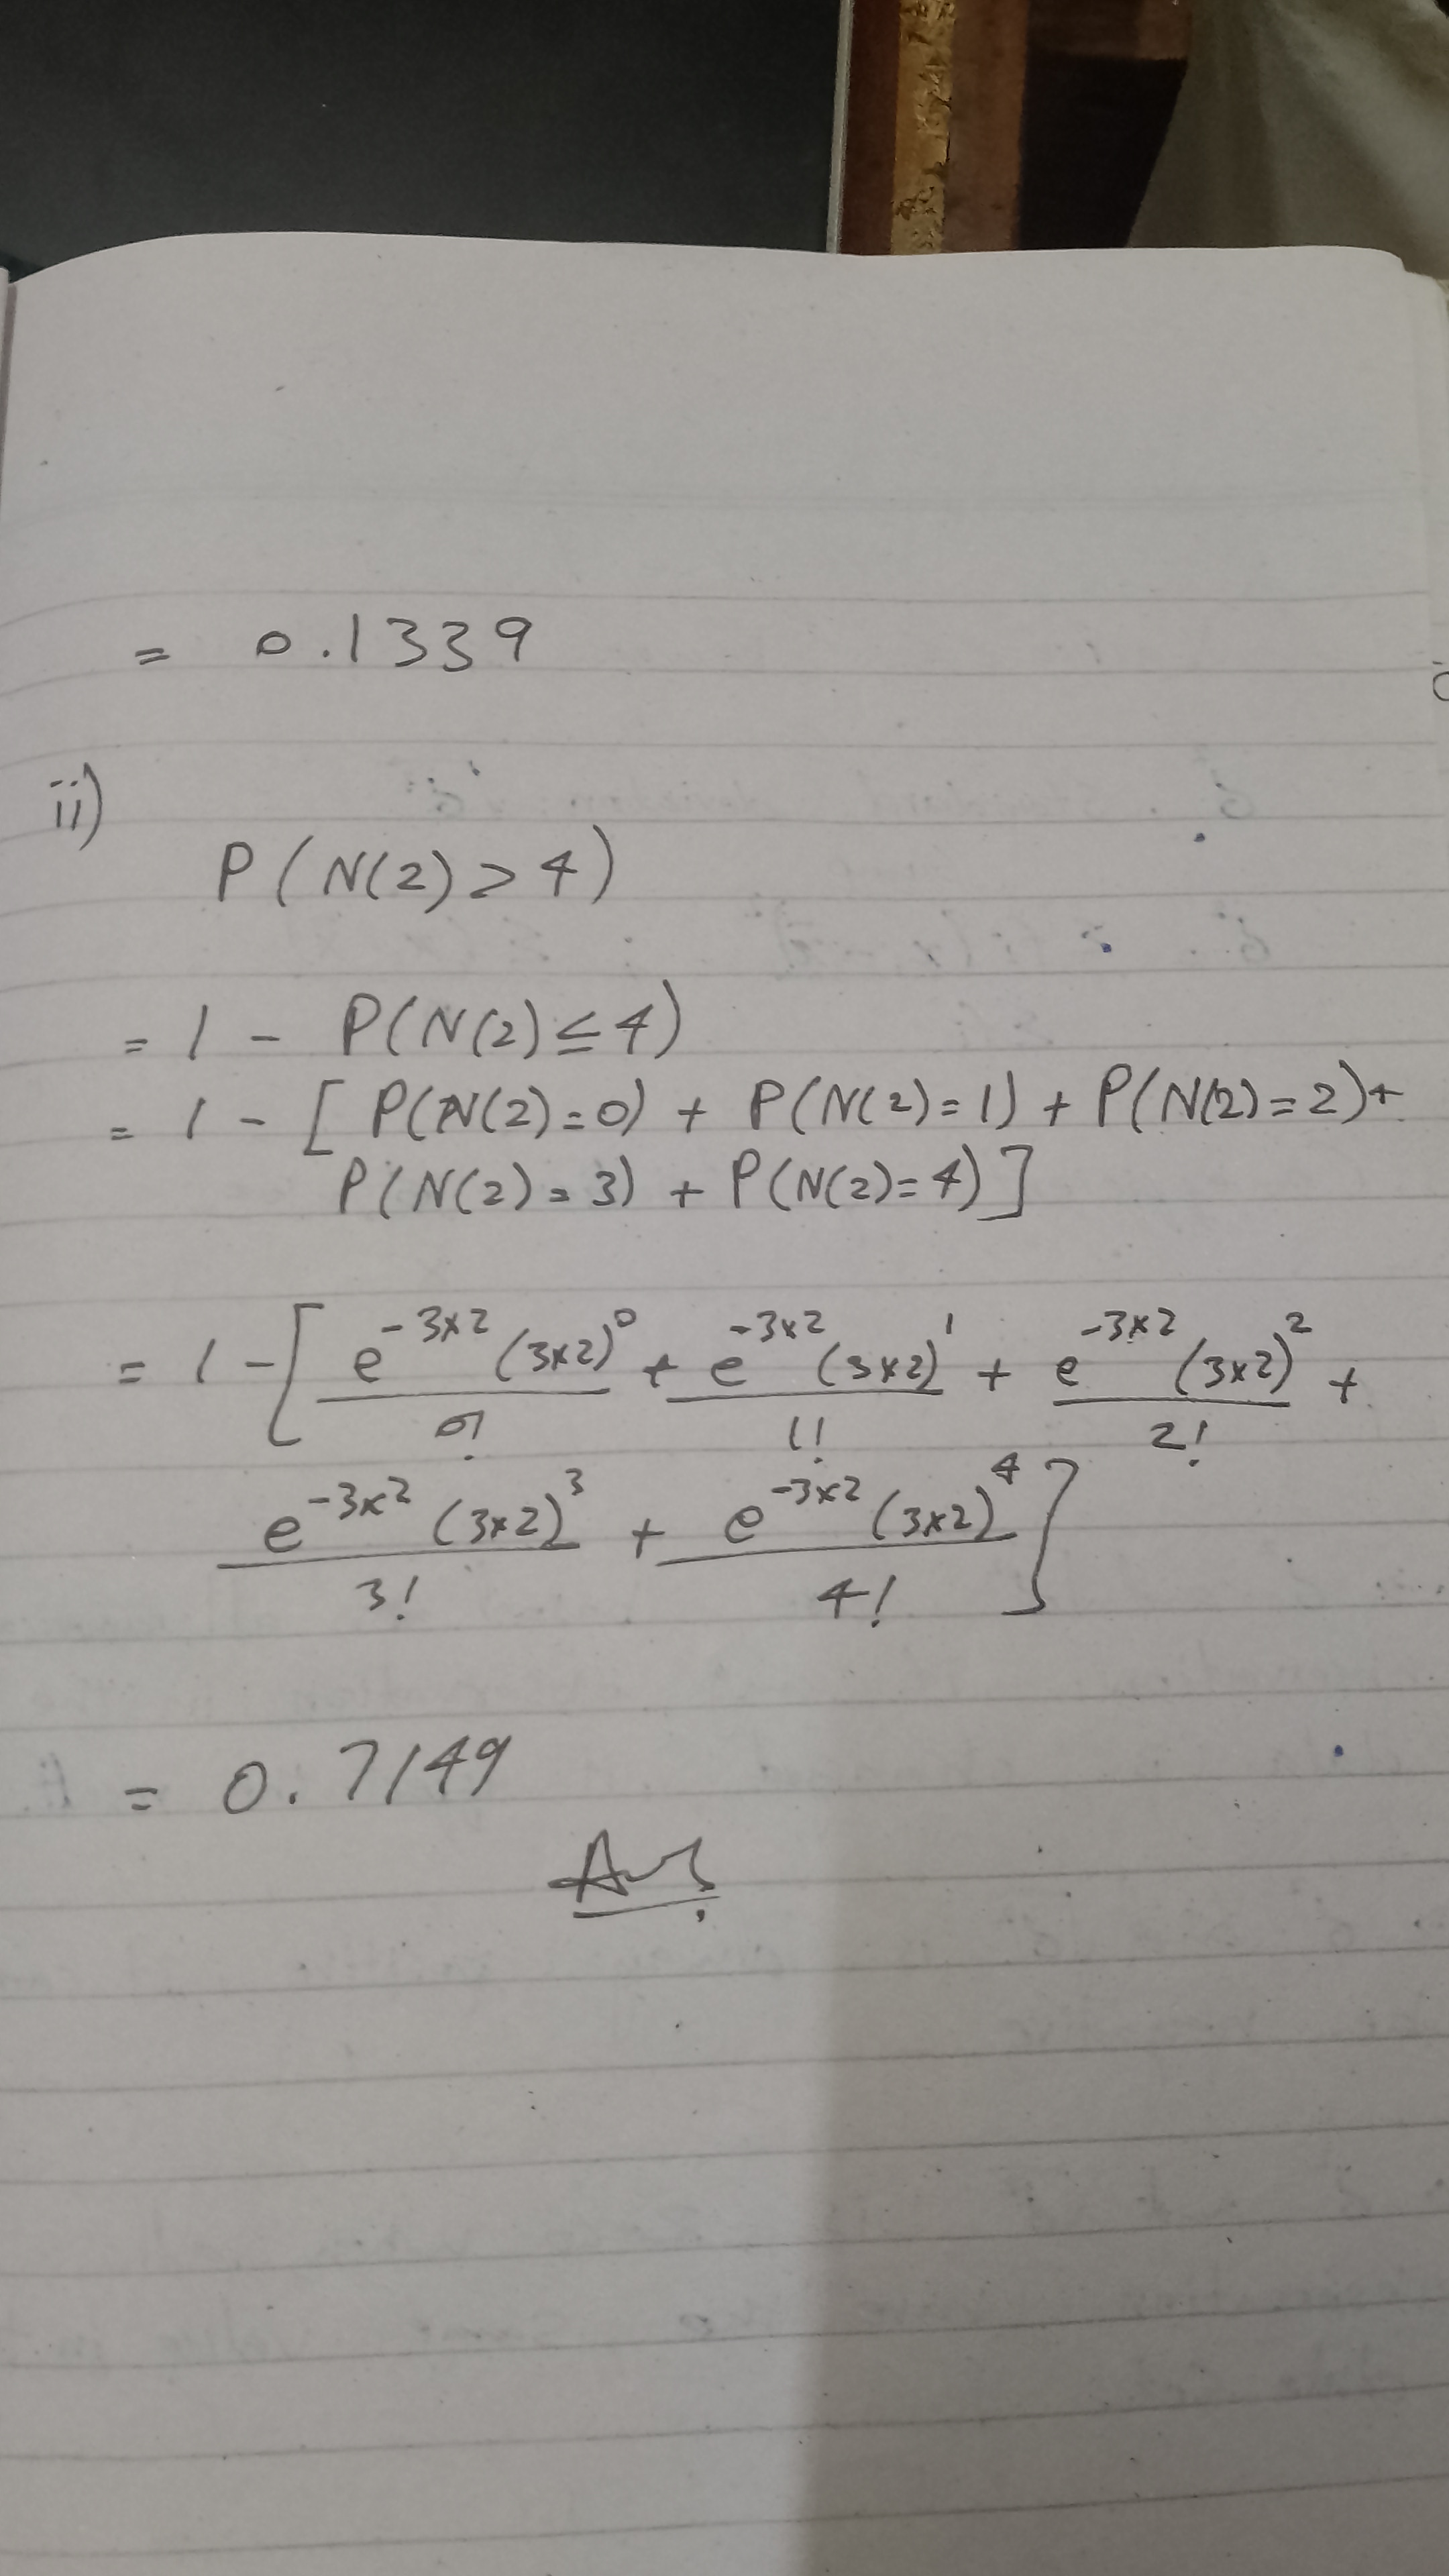 = 0.1339
ii)
P(N(2) > 4)
= 1 - P(N(2) ≤ 4)
= 1 - [ P(N(2)=0) + P(N(2)=1) + P(N(2)=2) +
P(N(2)=3) + P(N(2)=4) ]
= 1 - [ e^{-3×2} (3×2)^0 / 0! + e^{-3×2} (3×2)^1 / 1! + e^{-3×2} (3×2)^2 / 2! +
e^{-3×2} (3×2)^3 / 3! + e^{-3×2} (3×2)^4 / 4! ]
= 0.7149
Ans